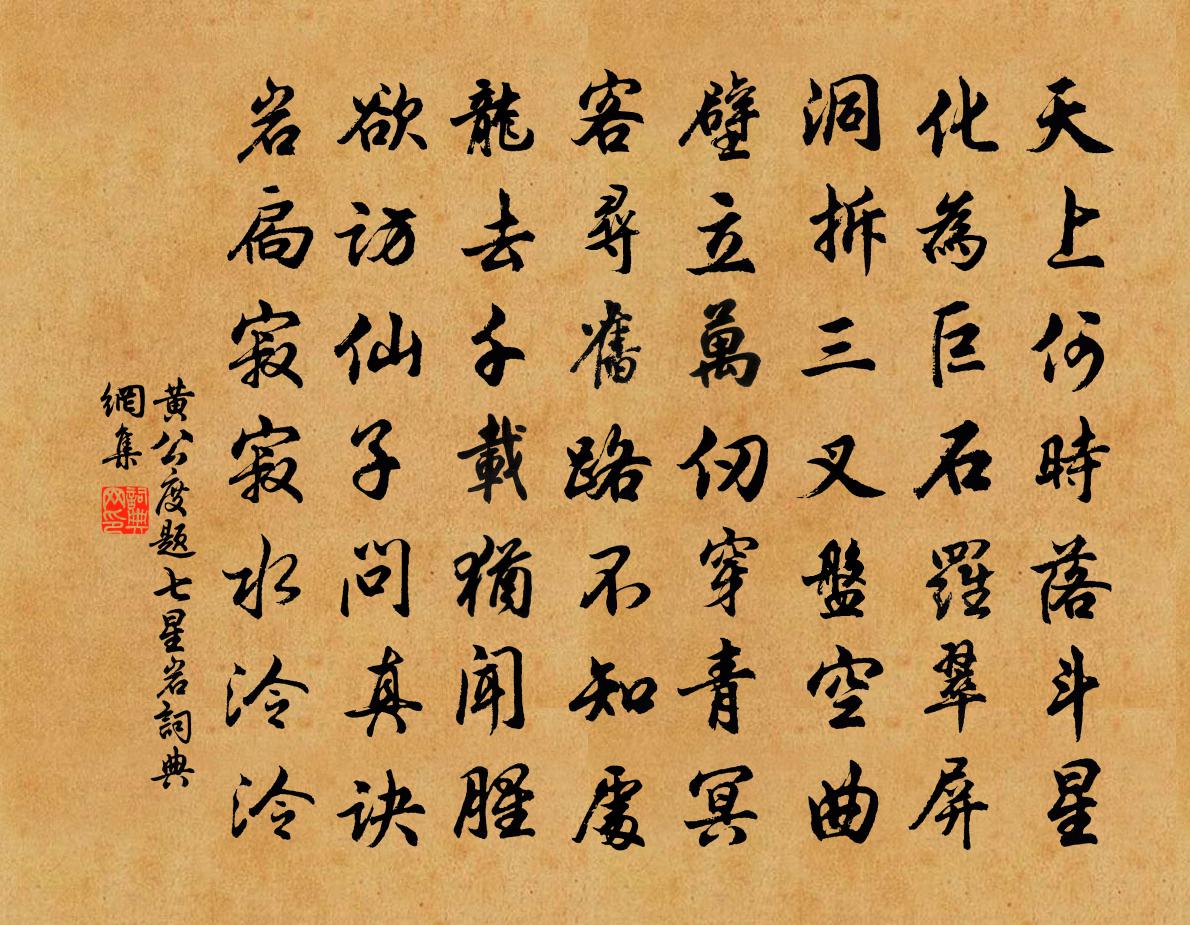 天上何時落斗星
化為巨石羅翠屏
洞拆三叉盤空曲
壁立萬仞穿青冥
客尋舊路不知處
龍去千載猶聞腥
欲訪仙子問真訣
岩扃寂寂水泠泠
黃公度題七星岩詞典
網集
詞典